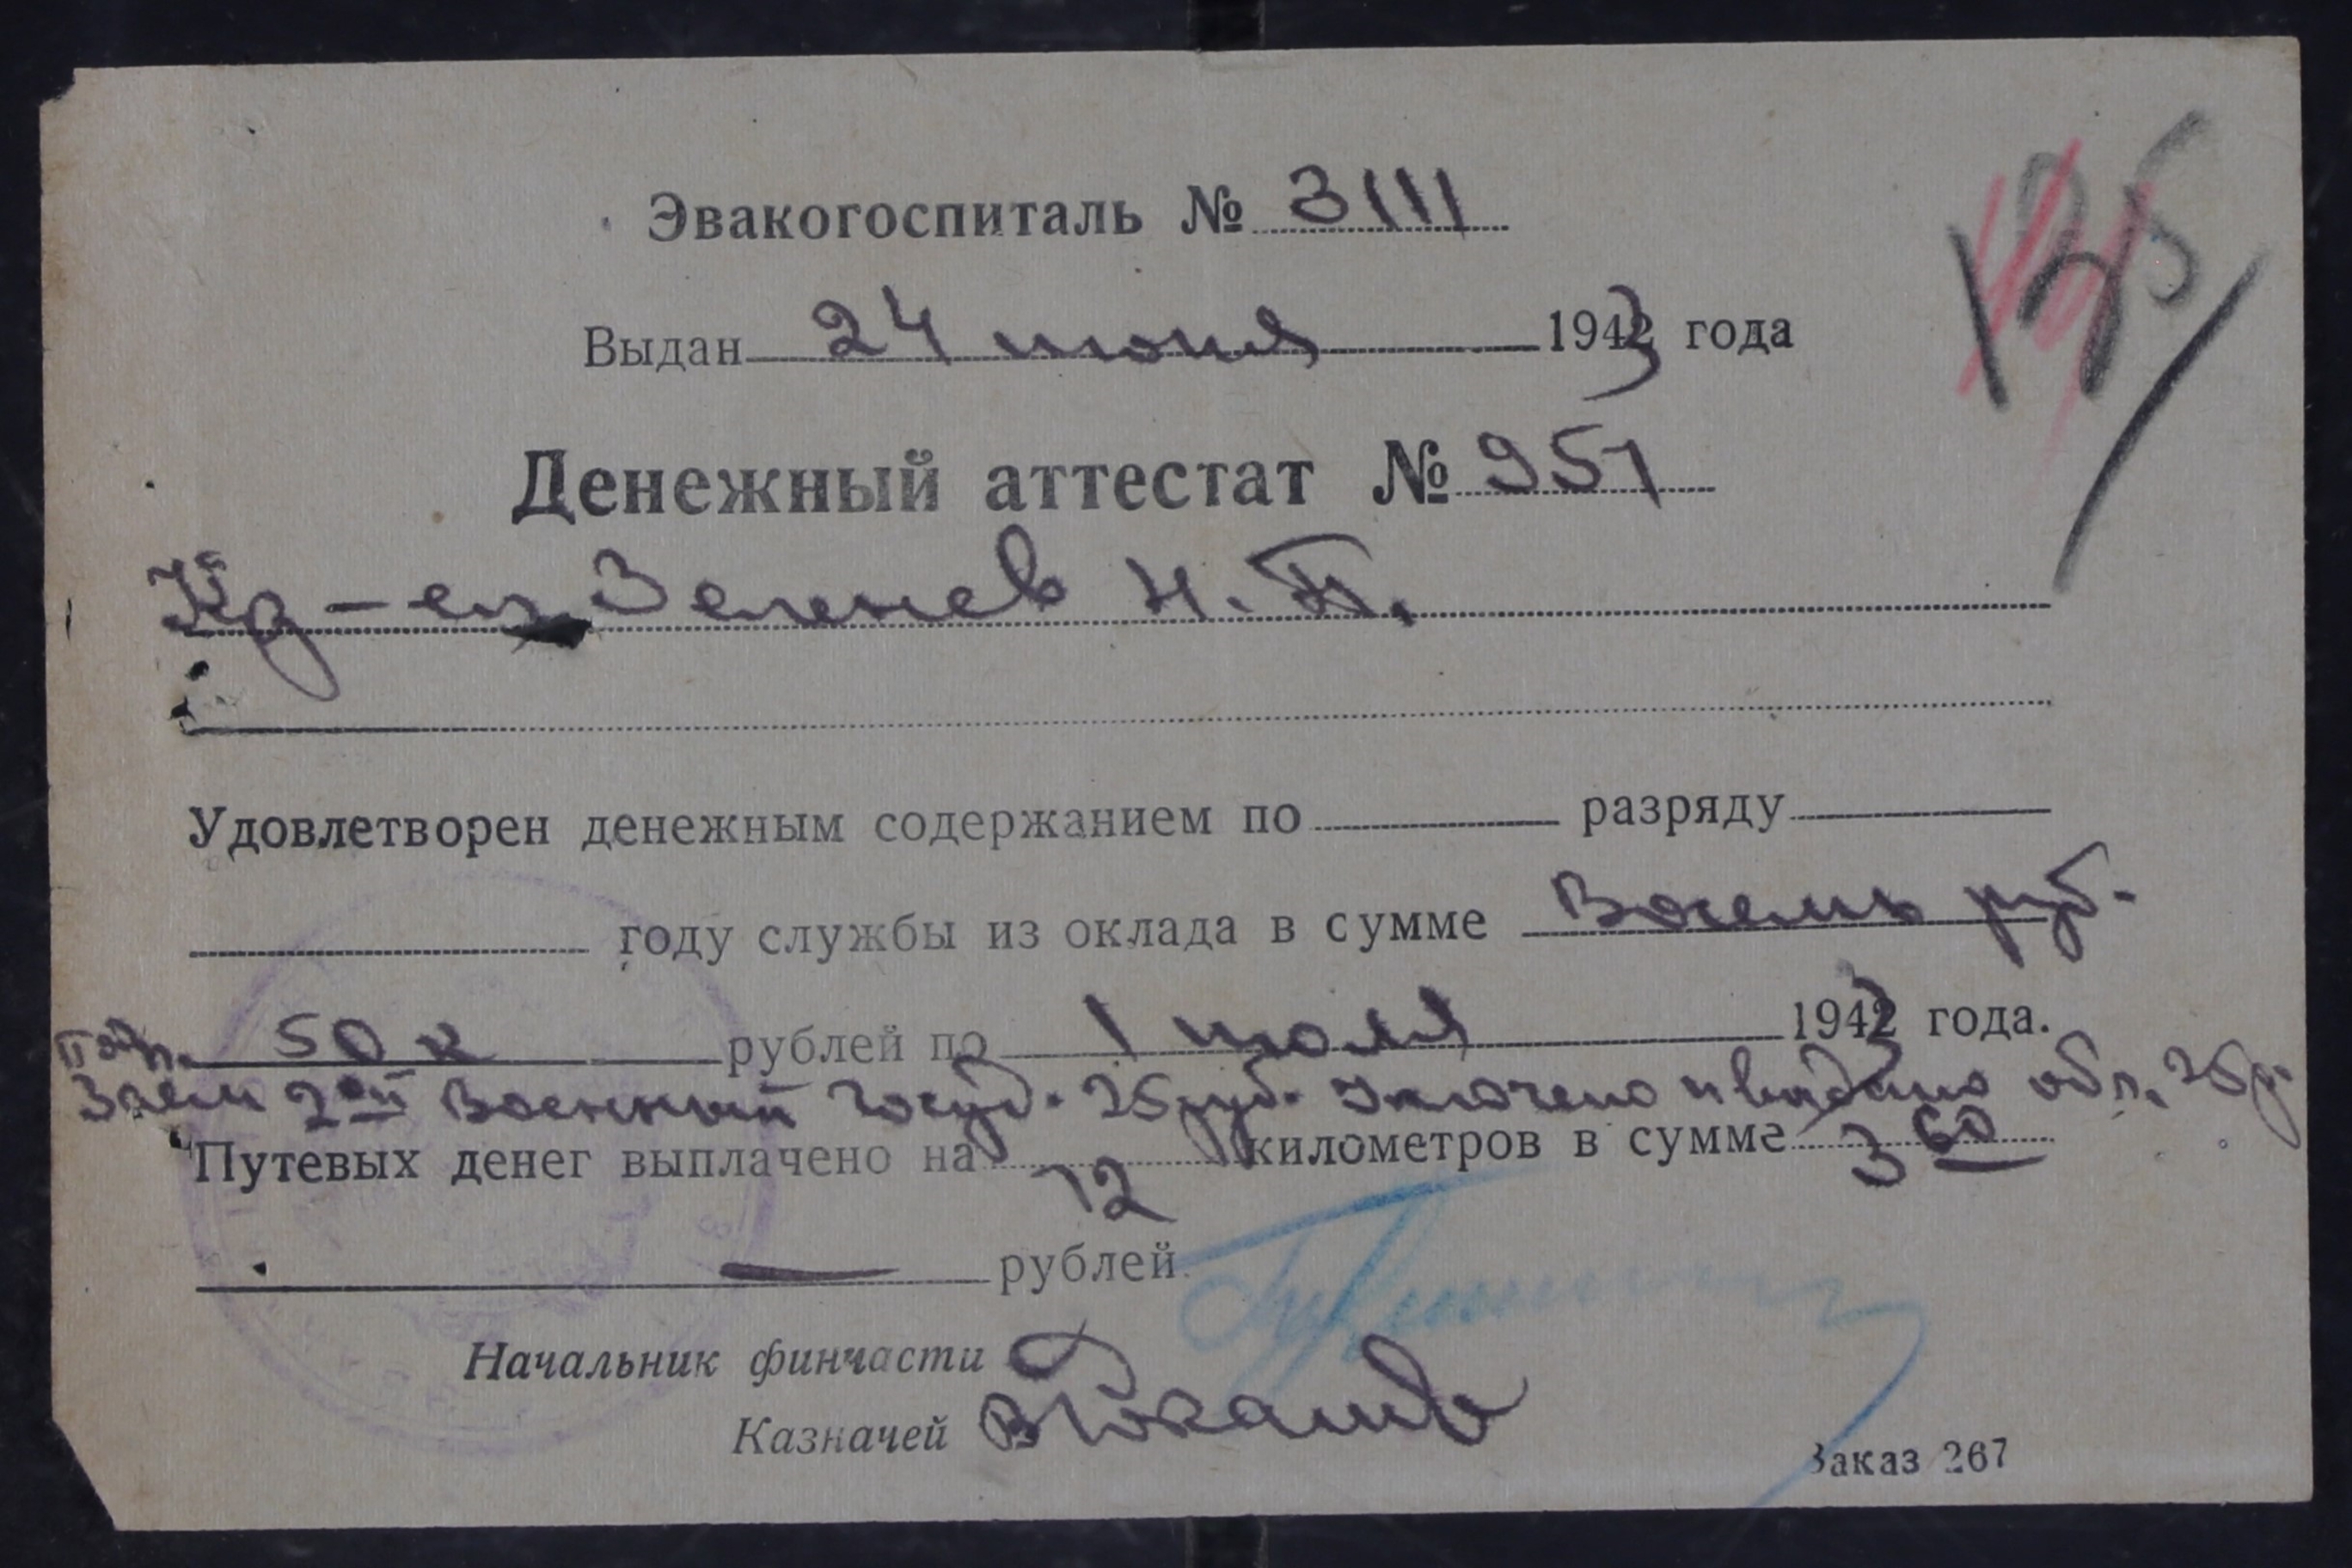 Эвакогоспиталь № 3111
Выдан 24 июня 1943 года
Денежный аттестат № 951
Кр-ец Зеленев Н. П.
Удовлетворен денежным содержанием по разряду
году службы из оклада в сумме Восемь руб.
50 к рублей по 1 июля 1943 года.
Заем 2ой Военный Госуд. 25 руб. и выдано обл. 25 р.
Путевых денег выплачено на 12 километров в сумме 3 60
— рублей
Начальник финчасти
Казначей
Заказ 267